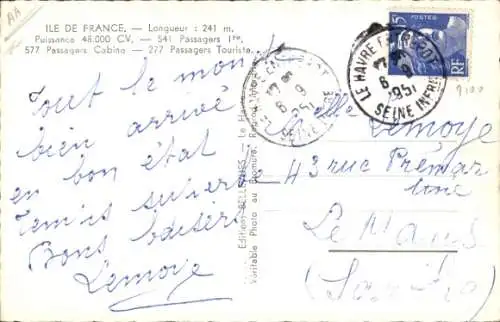 AA
ILE DE FRANCE. — Longueur : 241 m.
Puissance 48.000 CV. — 541 Passagers 1re,
577 Passagers Cabine — 277 Passagers Touriste.
Tout le monde
bien arrivé
en bon état
Temps superbe
Bons baisers
Lemoye
Editions BELLES
Véritable Photo au Bromure.
5
POSTES
RF
LE HAVRE
6 9
1951
SEINE INFRE
Melle Lemoye
43 rue Prémar
tine
Le Mans
(Sarthe)